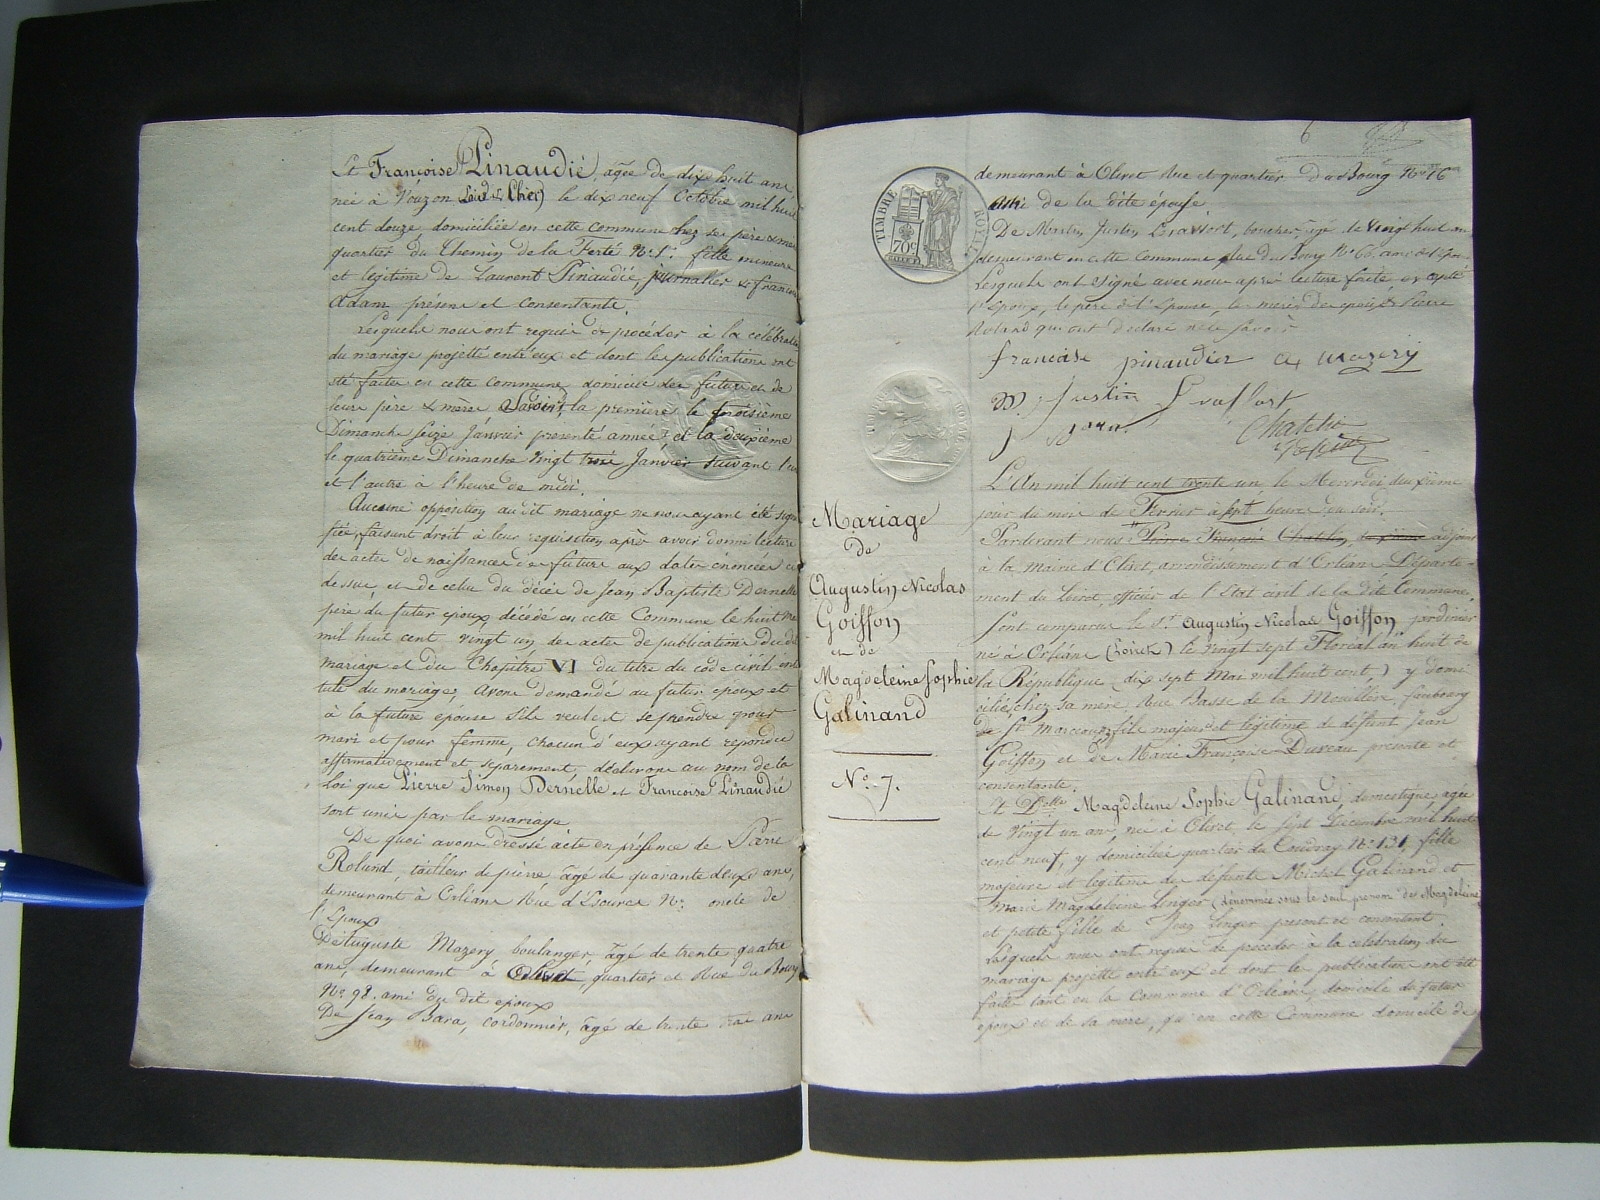 Et Françoise Pinaudié, âgée de dix huit ans
née à Vouzon (Loir & Cher) le dix neuf Octobre mil huit
cent douze, domiciliée en cette commune chez ses père & mère
quartier du Chemin de la Ferté N° 5. fille mineure
et légitime de Laurent Pinaudié, journalier & françoise
Adam présens et consentants.
Lesquels nous ont requis de procéder à la célébration
du mariage projetté entr'eux et dont les publications ont
été faites en cette commune, domicile des futurs et de
leurs père & mère Savoir: la première le troisième
Dimanche seize Janvier presente année et la deuxième
le quatrième Dimanche vingt trois Janvier suivant l'une
et l'autre à l'heure de midi.
Aucune opposition au dit mariage ne nous ayant été signi
fiée, faisant droit à leur requisition après avoir donné lecture
des actes de naissance des futurs aux dates énoncées ci
dessus, et de celui du décès de Jean Baptiste Dernelle
père du futur epoux, décédé en cette Commune le huit
mil huit cent vingt un des actes de publications du dit
mariage et du Chapitre VI du titre du code civil inti
tulé du mariage, avons demandé au futur epoux et
à la future épouse s'ils veulent se prendre pour
mari et pour femme, chacun d'eux ayant repondu
affirmativement et séparement, déclarons au nom de la
Loi que Pierre Simon Dernelle et Françoise Pinaudié
sont unis par le mariage
De quoi avons dressé acte en présence de Pierre
Roland, tailleur de pierre âgé de quarante deux ans,
demeurant à Orléans Rue d'Escures N° oncle de
l'Epoux
De Auguste Mazery boulanger âgé de trente quatre
ans, demeurant à Olivet, quartier et Rue du Bourg
N° 98. ami du dit epoux
De Jean Bara, cordonnier, âgé de trente trois ans
6
TIMBRE ROYAL
70c
demeurant à Olivet Rue et quartier du Bourg N° 76
Ami de la dite épouse
De Martin Justin boucher, âgé de vingt huit ans
demeurant en cette Commune Rue du Bourg N° 66. ami de l'Epouse
Lesquels ont signé avec nous après lecture faite, excepté
l'Epoux, le père de l'Epouse, les mères des epoux & Pierre
Roland qui ont déclaré ne le savoir
francoise pinaudier a mazery
M. Justin
J Bara
Chatelin
L'An mil huit cent trente un le Mercredi deuxième
jour du mois de Fevrier à sept heures du soir.
Pardevant nous Pierre François Chatelin adjoint
à la Mairie d'Olivet, arrondissement d'Orléans Départe-
ment du Loiret, officier de l'Etat civil de la dite Commune,
Sont comparus le Sr. Augustin Nicolas Goiffon jardinier
né à Orléans (Loiret) le vingt sept Floréal an huit de
la République (dix sept Mai mil huit cent,) y domi
cilié, chez sa mère, Rue Basse de la Mouillère, faubourg
de St Marceau, fils majeur et légitime de deffunt Jean
Goiffon et de Marie Françoise Dureau presente et
consentante.
Et Dlle Magdeleine Sophie Galinand, domestique, agée
de vingt un ans, née à Olivet, le sept Décembre mil huit
cent neuf, y domiciliée quartier du Coudray N° 131, fille
majeure et légitime des defunts Michel Galinand et
Marie Magdeleine Linger (dénommée sous le seul prenom de Magdeleine)
et petite fille de Jean Linger present et consentant.
Lesquels nous ont requis de proceder à la celebration du
mariage projetté entr'eux et dont les publications ont été
faites tant en la Commune d'Orléans, domicile du futur
epoux et de sa mère, qu'en cette Commune domicile de
Mariage
de
Augustin Nicolas
Goiffon
et de
Magdeleine Sophie
Galinand
N° 7.